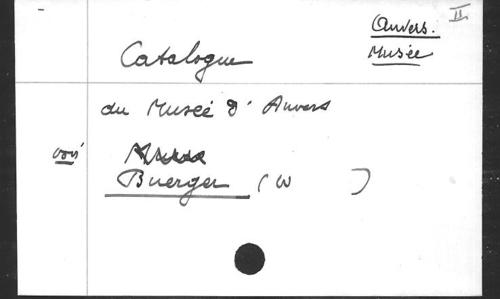 Anvers. II
Musée
Catalogue
du Musée d'Anvers
voir
Buerger (W )